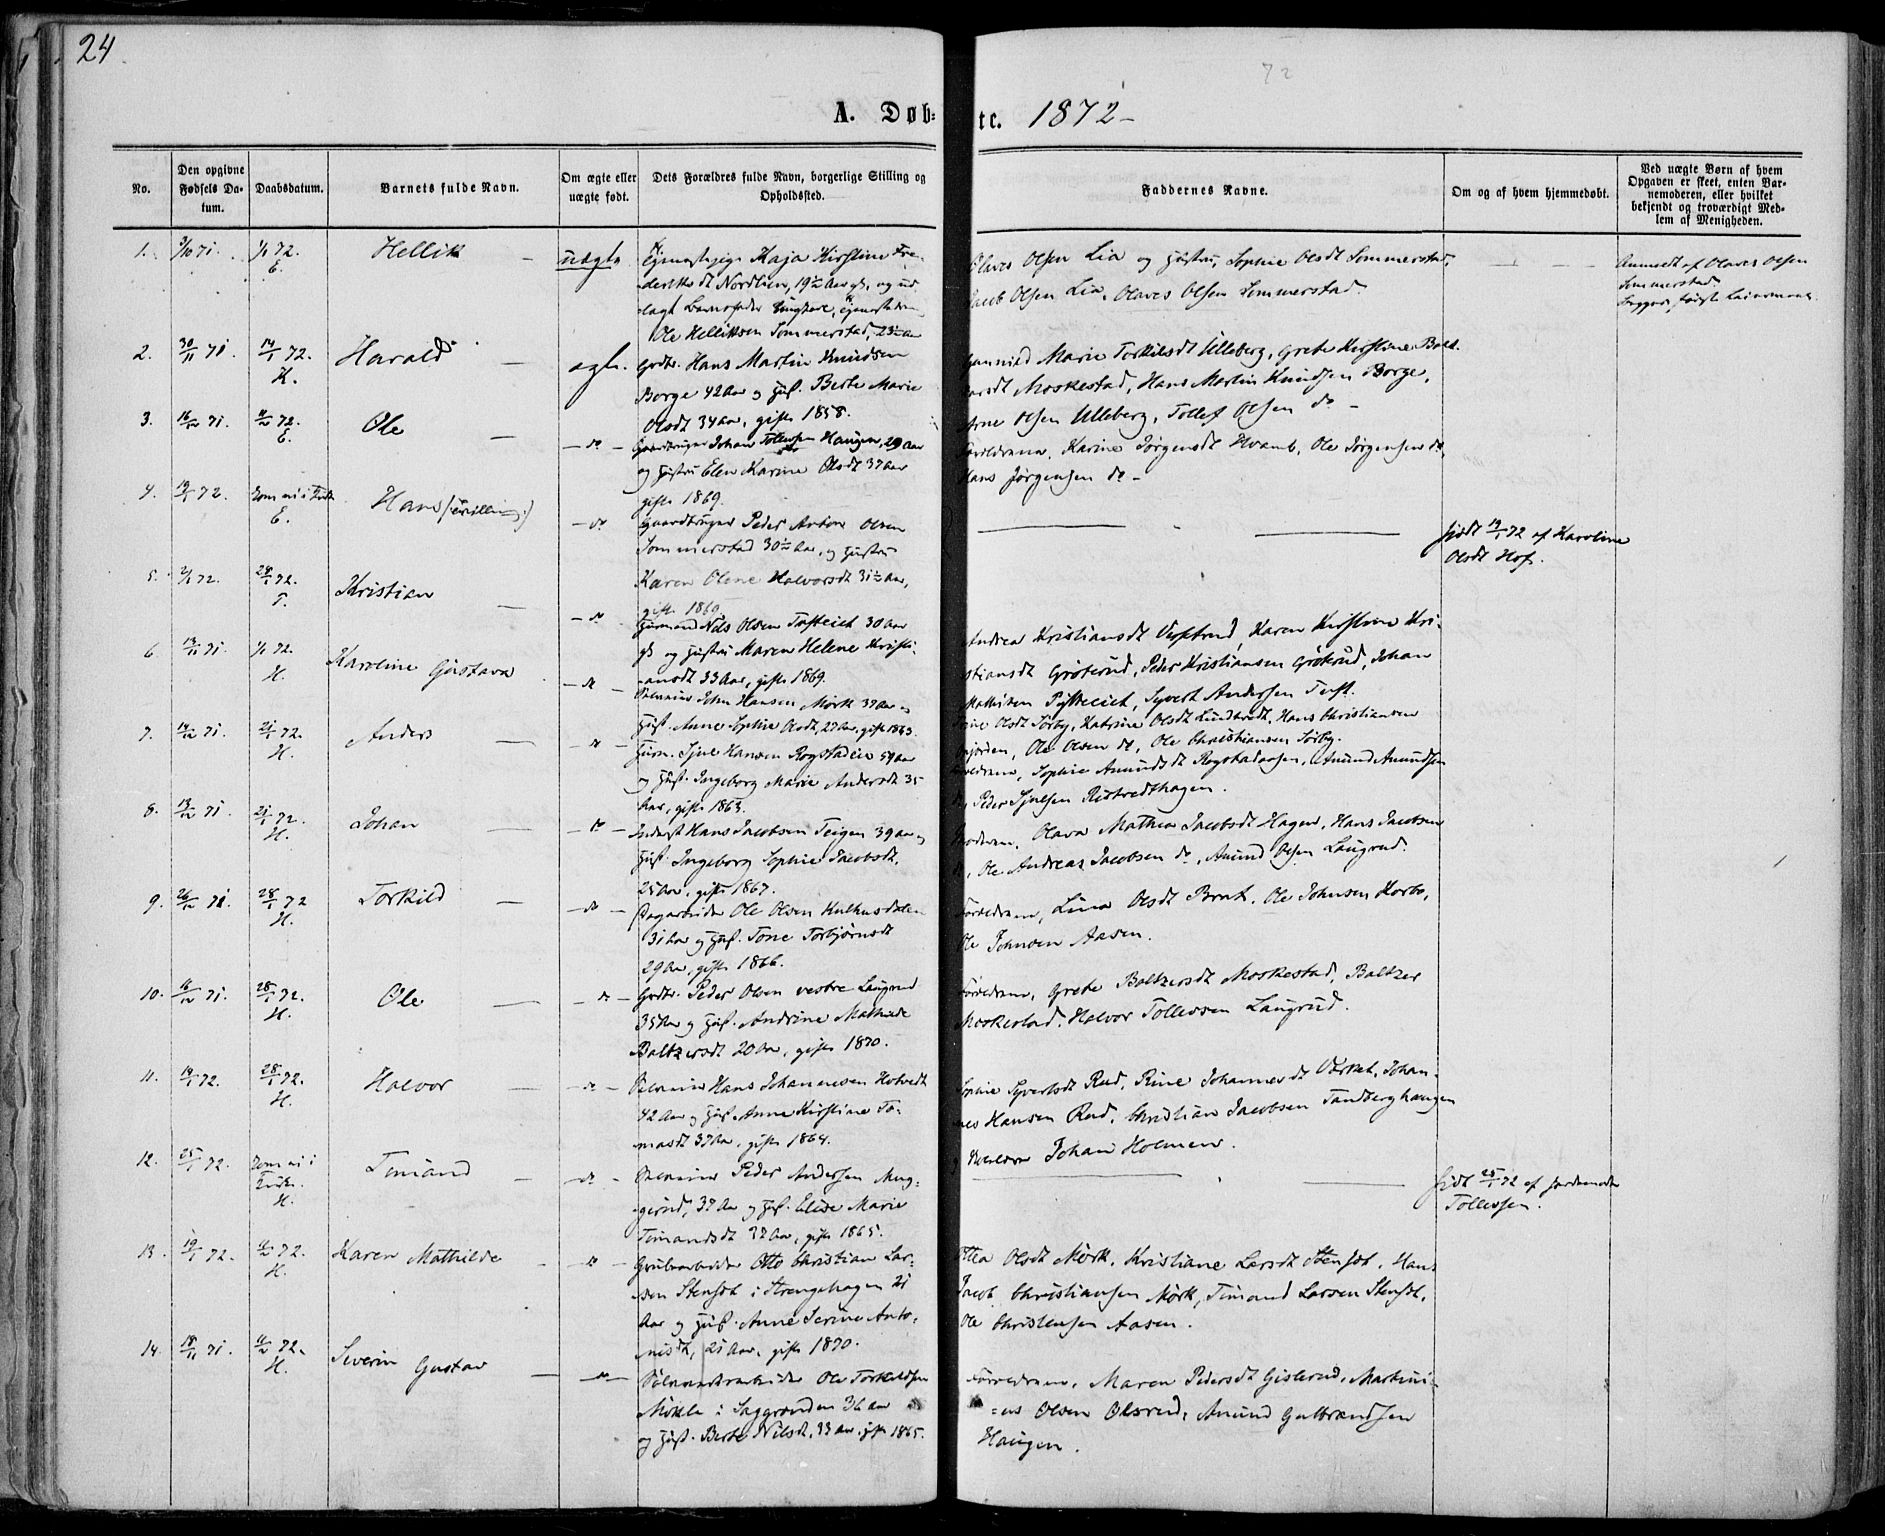 24
72
A. Døb=
te. 1872-
No.
Den opgivne
Fødsels Da-
tum.
Daabsdatum.
Barnets fulde Navn.
Om ægte eller
uægte født.
Dets Forældres fulde Navn, borgerlige Stilling og
Opholdssted.
Faddernes Navne.
Om og af hvem hjemmedøbt.
Ved uægte Børn af hvem
Opgaven er skeet, enten Bar-
nemoderen, eller hvilket
bekjendt og troværdigt Med-
lem af Menigheden.
1. 3/10 71. 1/1 72. Hellik - uægte
E.
Kaja Kirstine Fre-
deriksdt Nordlien, 19½ Aar gl, og ud
lagt Barnefader Ungkarl,
Ole Helliksen Sommerstad, 23½ Aar
Olaves Olsen Lia og Hustru, Sophie Olsdt Sommerstad,
Jacob Olsen Lia, Olaves Olsen Sommerstad.
Anmeldt af Olaves Olsen
Sommerstad
2. 30/11 71. 14/1 72. Harald - ægte.
K.
Gdbr. Hans Martin Knudsen
Borge 42 Aar og Hus. Berte Marie
Olsdt 34 Aar, gifte 1858.
Marie Torkilsdt Ulleberg, Grete Kirstine Balt.
sarsdt Moskestad, Hans Martin Knudsen Borge,
Arne Olsen Ulleberg, Tollef Olsen do -
3. 16/12 71. 11/2 72. Ole - - do -
E.
Gaardbruger Johan Tollefsen Haugen, 29 Aar
og Hustru Elen Karine Olsdt 37 Aar
gifte 1869.
Forældrene, Karine Jørgensdt Hvamb, Ole Jørgensen do,
Hans Jørgensen do -
4. 19/1 72. Kom ei i Kirke Hans (: tvilling :) - do
E.
Gaardbruger Peder Anton Olsen
Sommerstad 30½ Aar, og Hustru
Karen Olene Halvorsdt 31½ Aar,
gifte 1869.
hjdt 19/1 72 af Karoline
Olsdt Hof.
5. 2/1 72. 28/1 72. Kristian - - do
T.
Husmand Nils Olsen Tufteeiet 30 Aar
gl og Hustru Maren Helene Kristi-
ansdt 33 Aar, gifte 1869.
Andrea Kristiansdt Karen Kirstine Kri-
stiansdt Grøterud, Peder Kristiansen Grøterud, Johan
Mathisen Syvert Andersen Tuft.
6. 13/11 71. 1/1 72. Karoline Gustava - do -
H.
John Hansen Mørk 37 Aar og
Hus. Anne Sophie Olsdt, 27 Aar, gifte 1863.
Olsdt Sørby, Katrine Olsdt Lundtvedt, Hans Christiansen
Ole Olsen do, Ole Christiansen Sørby.
7. 14/12 71. 21/1 72. Anders - - do
H.
Husm. Sjul Hansen Rogstadeie 59 Aar
og Hus. Ingeborg Marie Andersdt 35
Aar, gifte 1863.
Forældrene, Sophie Amundsdt Rogstadaasen, Amund Amundsen
do, Peder Sjulsen Ristvedthagen.
8. 13/12 71. 21/1 72. Johan - - do -
H.
Inderst Hans Jacobsen Teigen 39 Aar og
Hus. Ingeborg Sophie Jacobsdt.
25 Aar, gifte 1867.
Moderen, Olava Mathea Jacobsdt Hagen, Hans Jacobsen
do, Ole Andreas Jacobsen do, Amund Olsen Laugrud.
9. 26/12 71. 28/1 72 Torkild - - do -
H.
Dagarbeider Ole Olsen Kulhusdalen
31 Aar og Hus. Tone Torbjørnsdt
29 Aar, gifte 1866.
Forældrene, Lina Olsdt Bratt, Ole Johnsen Korbo,
Ole Johnsen Aasen.
10. 16/12 71. 28/1 72. Ole - - do -
H.
Gdbr. Peder Olsen vestre Laugrud
35 Aar og Hus. Andrine Mathilde
Baltzersdt 20 Aar, gifte 1870.
Forældrene, Grete Baltzersdt Moskestad, Baltzer
Moskestad, Halvor Tollefsen Laugrud.
11. 14/1 72. 28/1 72. Halvor - - do -
H.
Hans Johannesen Hotvedt
42 Aar og Hus. Anne Kirstine To-
masdt 37 Aar, gifte 1864.
Sophie Syvertsdt Rud, Rine Johannesdt Johan-
nes Hansen Rud, Christian Jacobsen Tandberghaugen
og Johan Holmen.
12. 25/1 72. Kom ei i Timand - - do -
Kirke.
H.
Peder Andersen Mug-
gerud, 37 Aar og Hus. Elise Marie
Timandsdt 32 Aar, gifte 1865.
hjdt 25/1 72 af
Tollefsen.
13. 19/1 72. 11/2 72. Karen Mathilde - do -
H.
Grubearbeider Otto Christian Lar-
sen Stensbt i Strengehagen 21
Aar og Hus. Anne Serine Anto-
nisdt, 21 Aar, gifte 1870.
Olsdt Mørk, Kristiane Larsdt Stensbt, Hans
Jacob Christiansen Mørk, Timand Larsen Stensbt,
Ole Christensen Aasen.
14. 18/11 71. 11/2 72. Severin Gustav - - do -
H.
Sølvverksarbeider Ole Torkildsen
Møkle i Saggrenden 36 Aar
og Hus. Berte Nilsdt. 33 Aar, gifte 1865.
Forældrene, Maren Pedersdt Gislerud, Martini-
us Olsen Olsrud, Amund Gulbrandsen
Haugen.